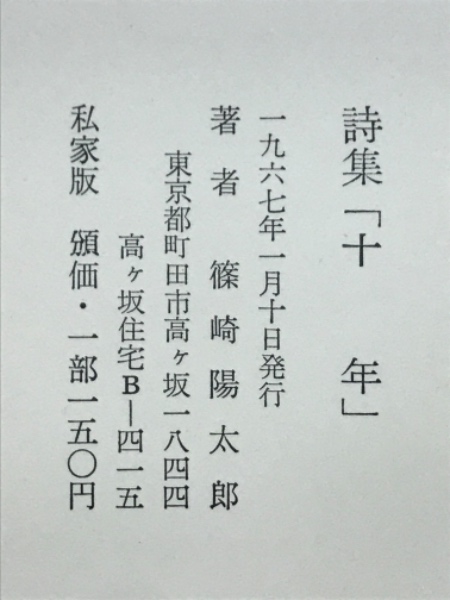 詩集「十 年」
一九六七年一月十日発行
著者 篠崎陽太郎
東京都町田市高ヶ坂一八四四
高ヶ坂住宅B―四一五
私家版 頒価・一部一五〇円